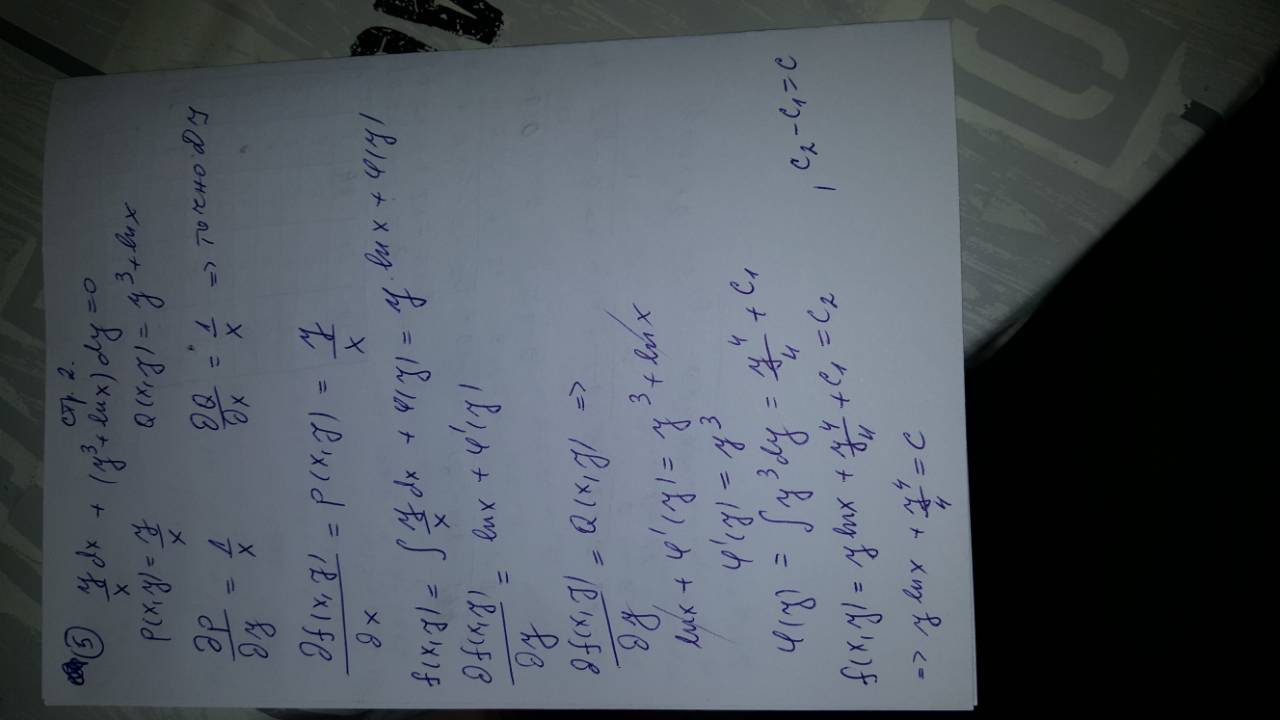 стр. 2.
⑤ y/x dx + (y³ + lnx) dy = 0
P(x,y) = y/x Q(x,y) = y³ + lnx
∂P/∂y = 1/x ∂Q/∂x = 1/x => точно ДУ
∂f(x,y)/∂x = P(x,y) = y/x
f(x,y) = ∫ y/x dx + φ(y) = y lnx + φ(y)
∂f(x,y)/∂y = lnx + φ'(y)
∂f(x,y)/∂y = Q(x,y) =>
lnx + φ'(y) = y³ + lnx
φ'(y) = y³
φ(y) = ∫ y³ dy = y⁴/4 + C₁
f(x,y) = y lnx + y⁴/4 + C₁ = C₂ , C₂ - C₁ = C
=> y lnx + y⁴/4 = C